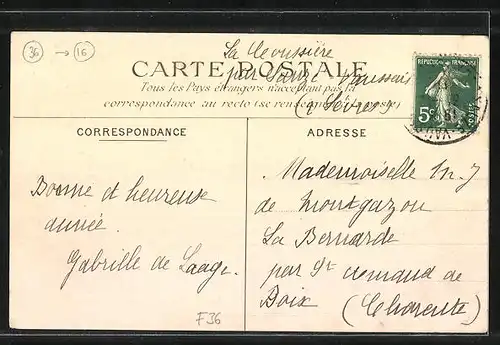 36 → 16
La Cloussière
par Sauzé Vaussais
(2 Sèvres)
CARTE POSTALE
Tous les Pays étrangers n'acceptant pas la
correspondance au recto (se renseigner à la poste)
RÉPUBLIQUE FRANÇAISE
5c
POSTES
CORRESPONDANCE
Bonne et heureuse
année.
Gabrielle de Laage.
F36
ADRESSE
Mademoiselle M. J
de Montgazon
La Bernarde
par St amand de
Boix (Charente)